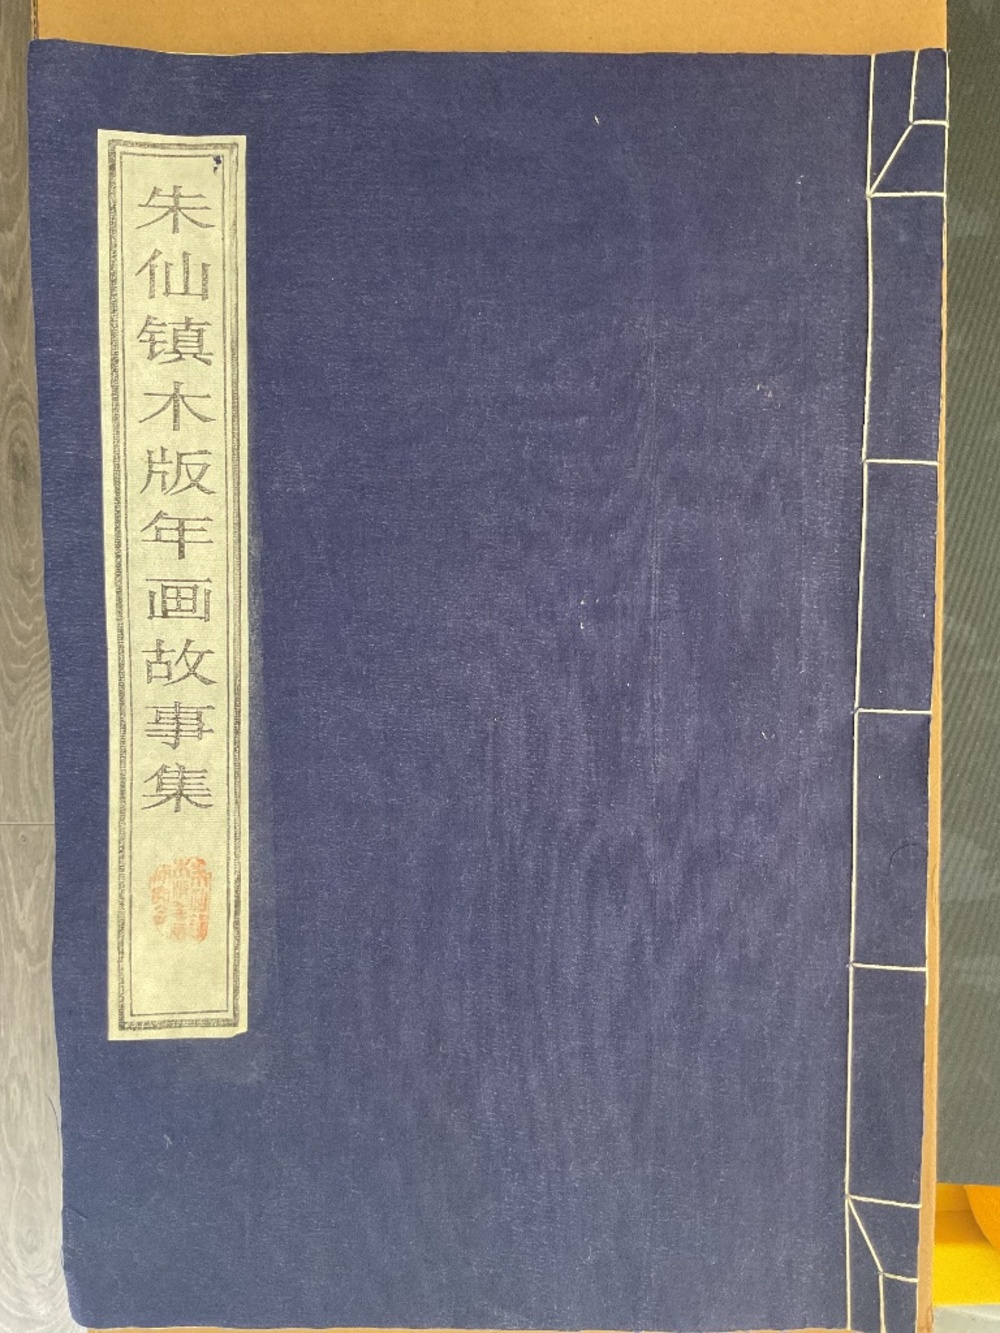 朱仙镇木版年画故事集